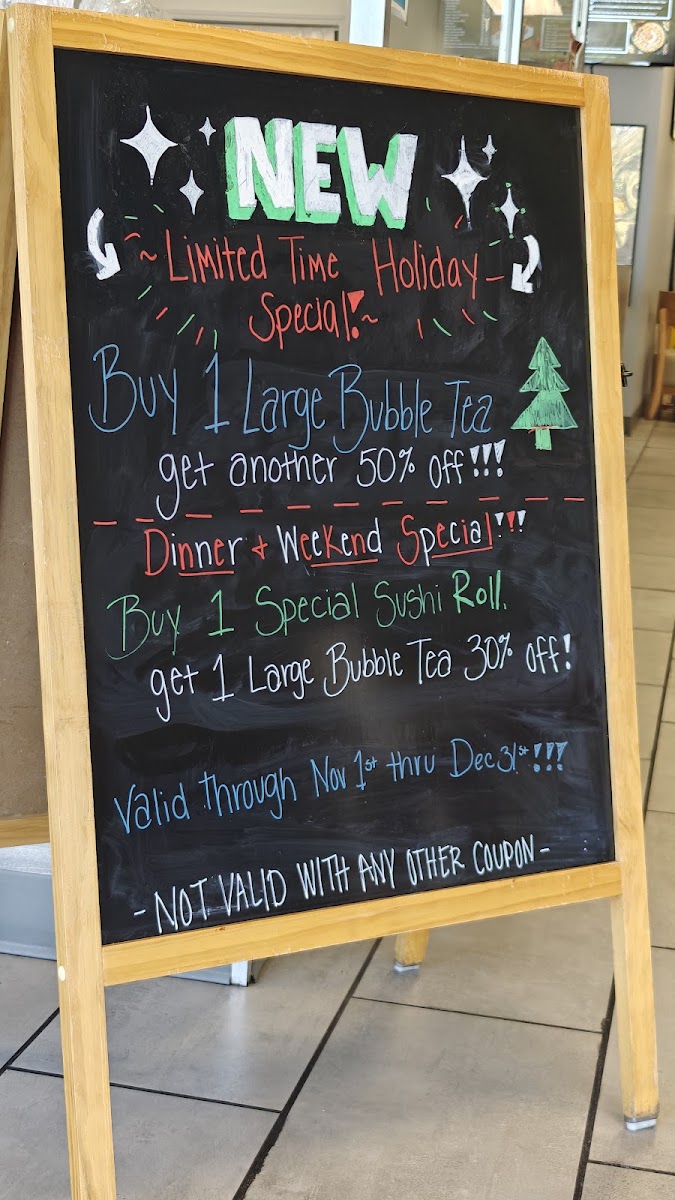 NEW
~ Limited Time Holiday –
Special! ~
Buy 1 Large Bubble Tea
get another 50% off!!!
Dinner + Weekend Special!!!
Buy 1 Special Sushi Roll.
get 1 Large Bubble Tea 30% off!
Valid through Nov 1st thru Dec 31st!!!
- NOT VALID WITH ANY OTHER COUPON -